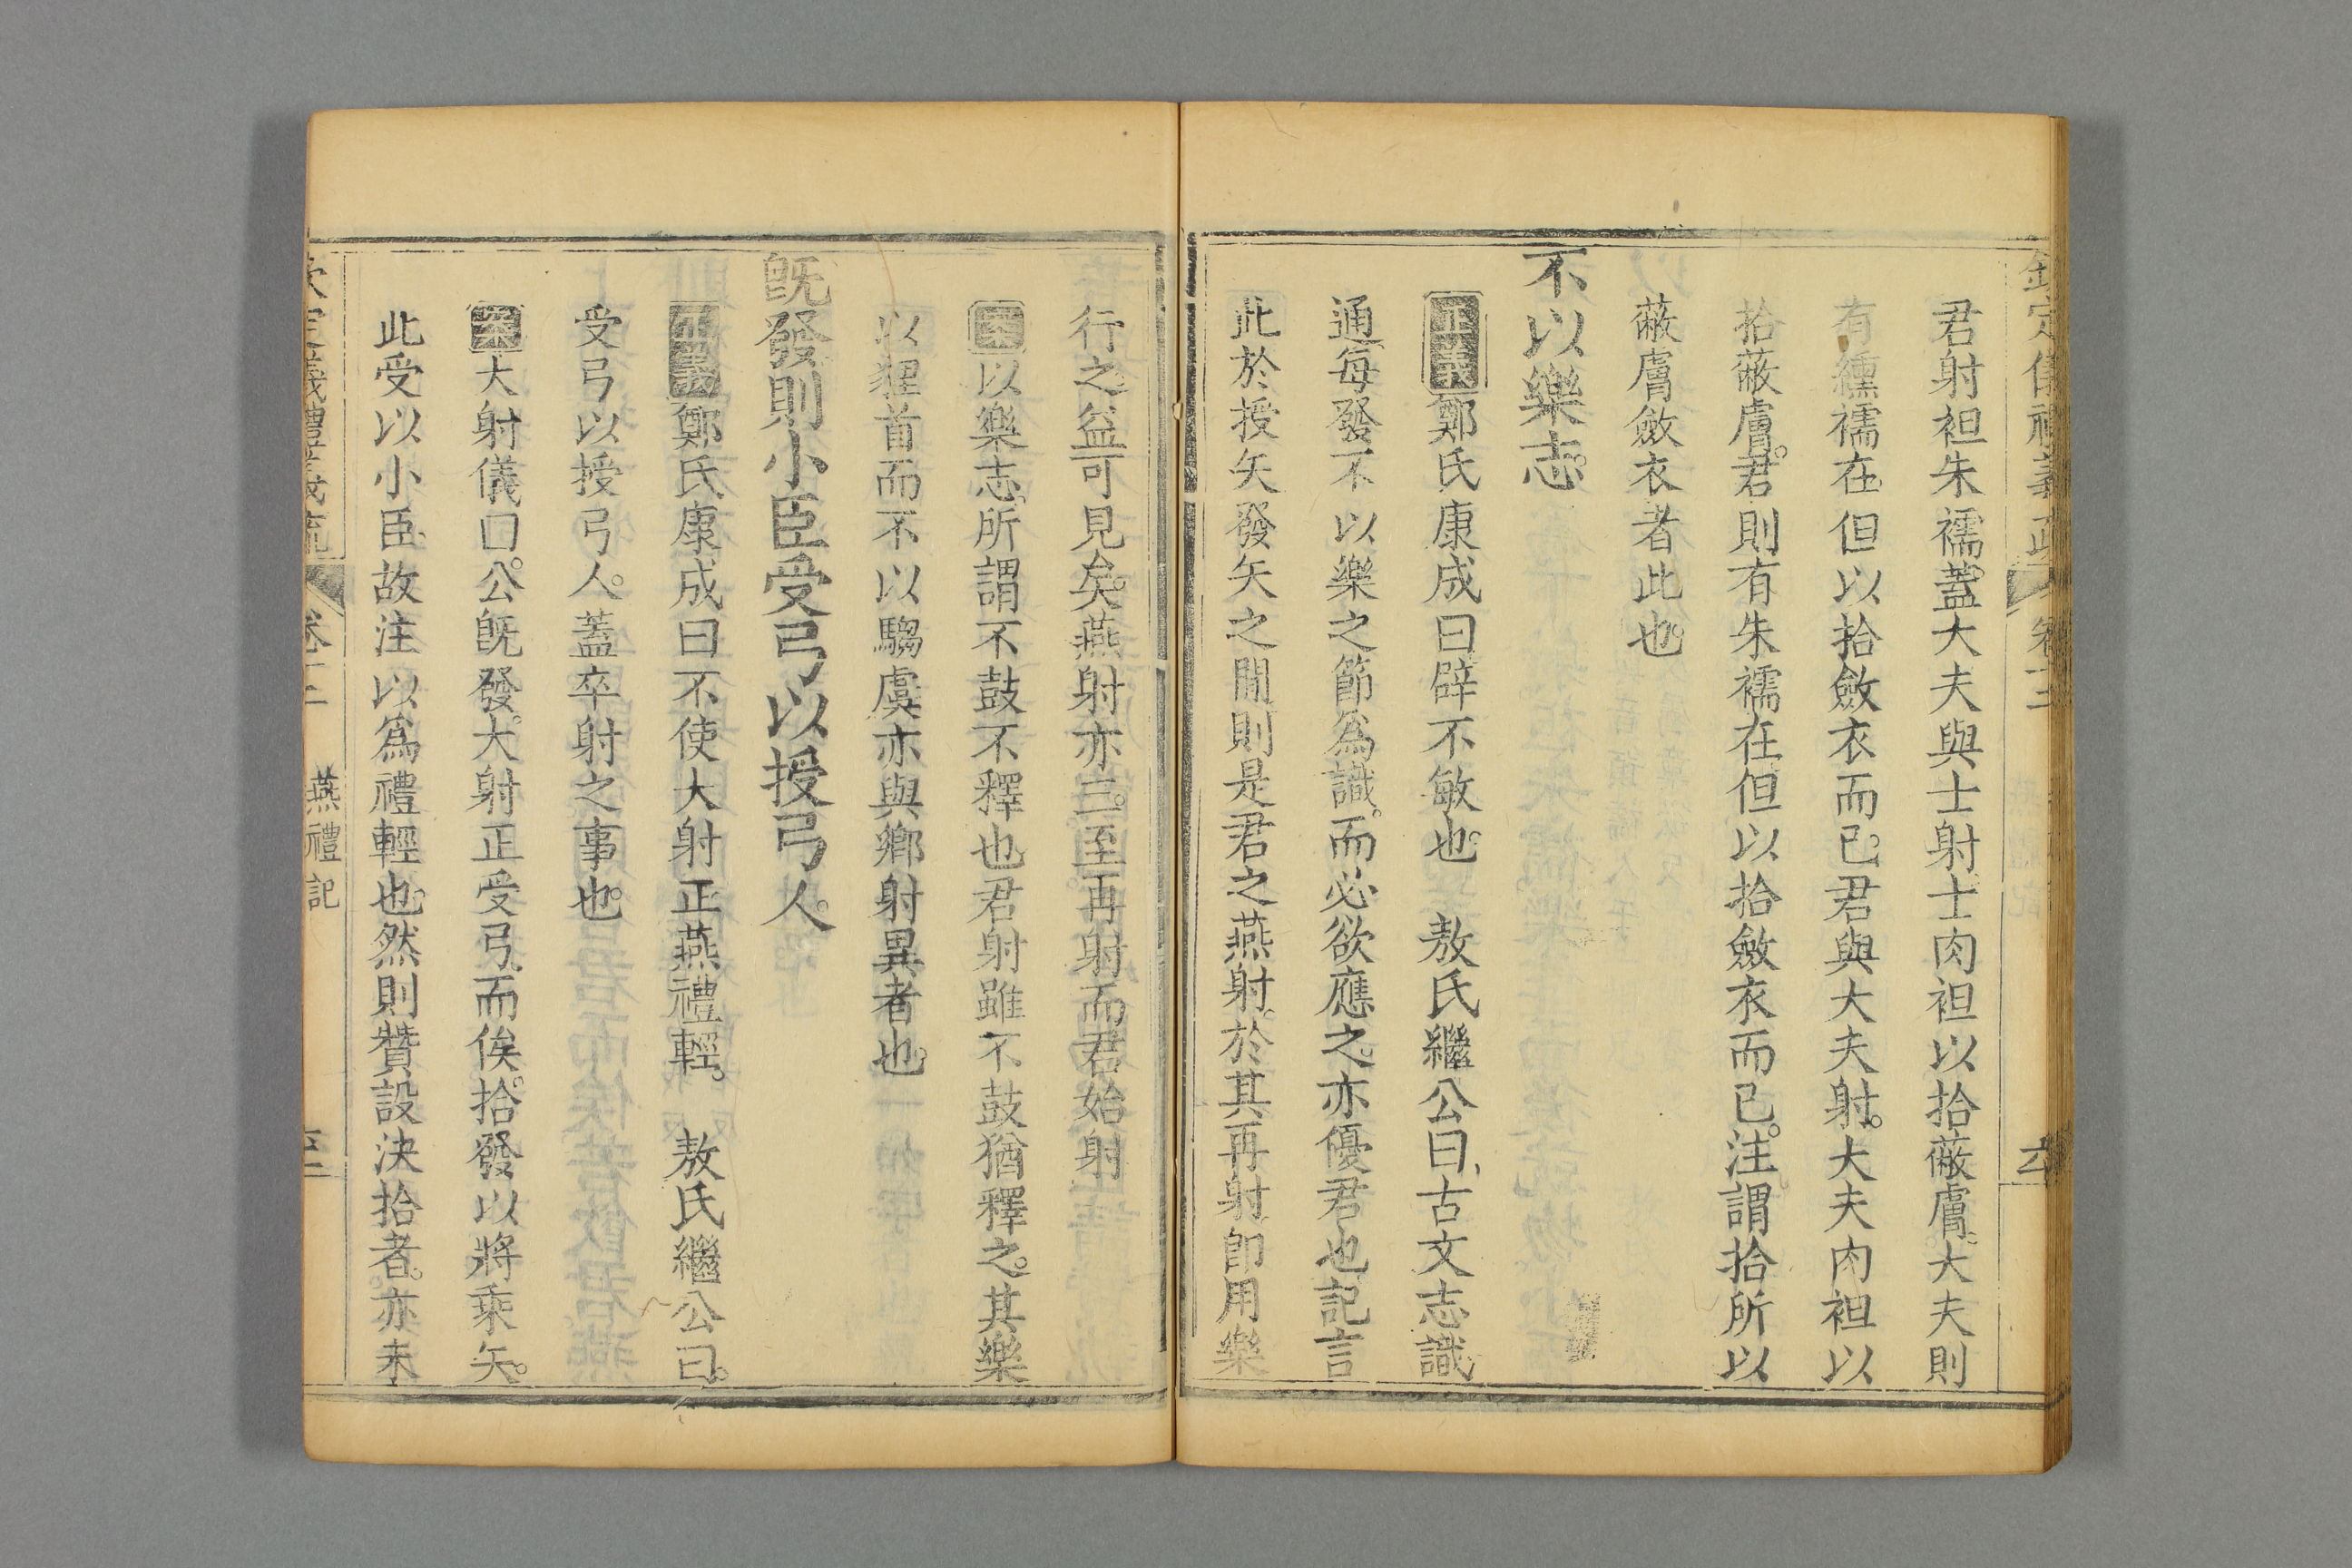 君射袒朱襦。蓋大夫與士射士肉袒以拾蔽膚。大夫則
有纁襦在但以拾斂衣而已君與大夫射。大夫肉袒以
拾蔽膚。君則有朱襦在但以拾斂衣而已。注謂拾所以
蔽膚斂衣者此也。
不以樂志。
正義鄭氏康成曰辟不敏也。 敖氏繼公曰、古文志識
通、每發不以樂之節爲識。而必欲應之。亦優君也記言
此於授矢發矢之間則是君之燕射。於其再射卽用樂
行之。益可見矣。燕射亦三。至再射而君始射
案以樂志、所謂不鼓不釋也君射雖不鼓猶釋之。其樂
以貍首而不以騶虞亦與鄉射異者也。
旣發則小臣受弓以授弓人。
正義鄭氏康成曰不使大射正燕禮輕。 敖氏繼公曰。
受弓以授弓人。蓋卒射之事也。
案大射儀曰。公旣發。大射正受弓而俟。拾發以將乘矢。
此受以小臣故注以爲禮輕也。然則贊設決拾者。亦未
欽定儀禮義疏 卷十二 燕禮記